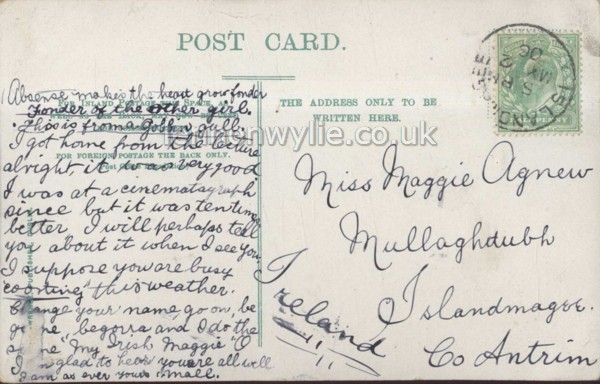 POST CARD.
Absense makes the heart grow fonder
Fonder of the other girl.
This is from a Goblin gull.
I got home from the lecture
alright, it was very good
I was at a cinematagraph
since but it was ten times
better. I will perhaps tell
you about it when I see you.
I suppose you are busy
coorting this weather.
Change your name, go on, be
begorra and I do the
"My Irish Maggie" O
glad to hear you are all well
I am as ever yours small.
FOR INLAND POSTAGE THIS SPACE
FOR FOREIGN POSTAGE THE BACK ONLY.
THE ADDRESS ONLY TO BE
WRITTEN HERE.
Miss Maggie Agnew
Mullaghdubh
Islandmagee.
Co Antrim
Ireland
wylie.co.uk